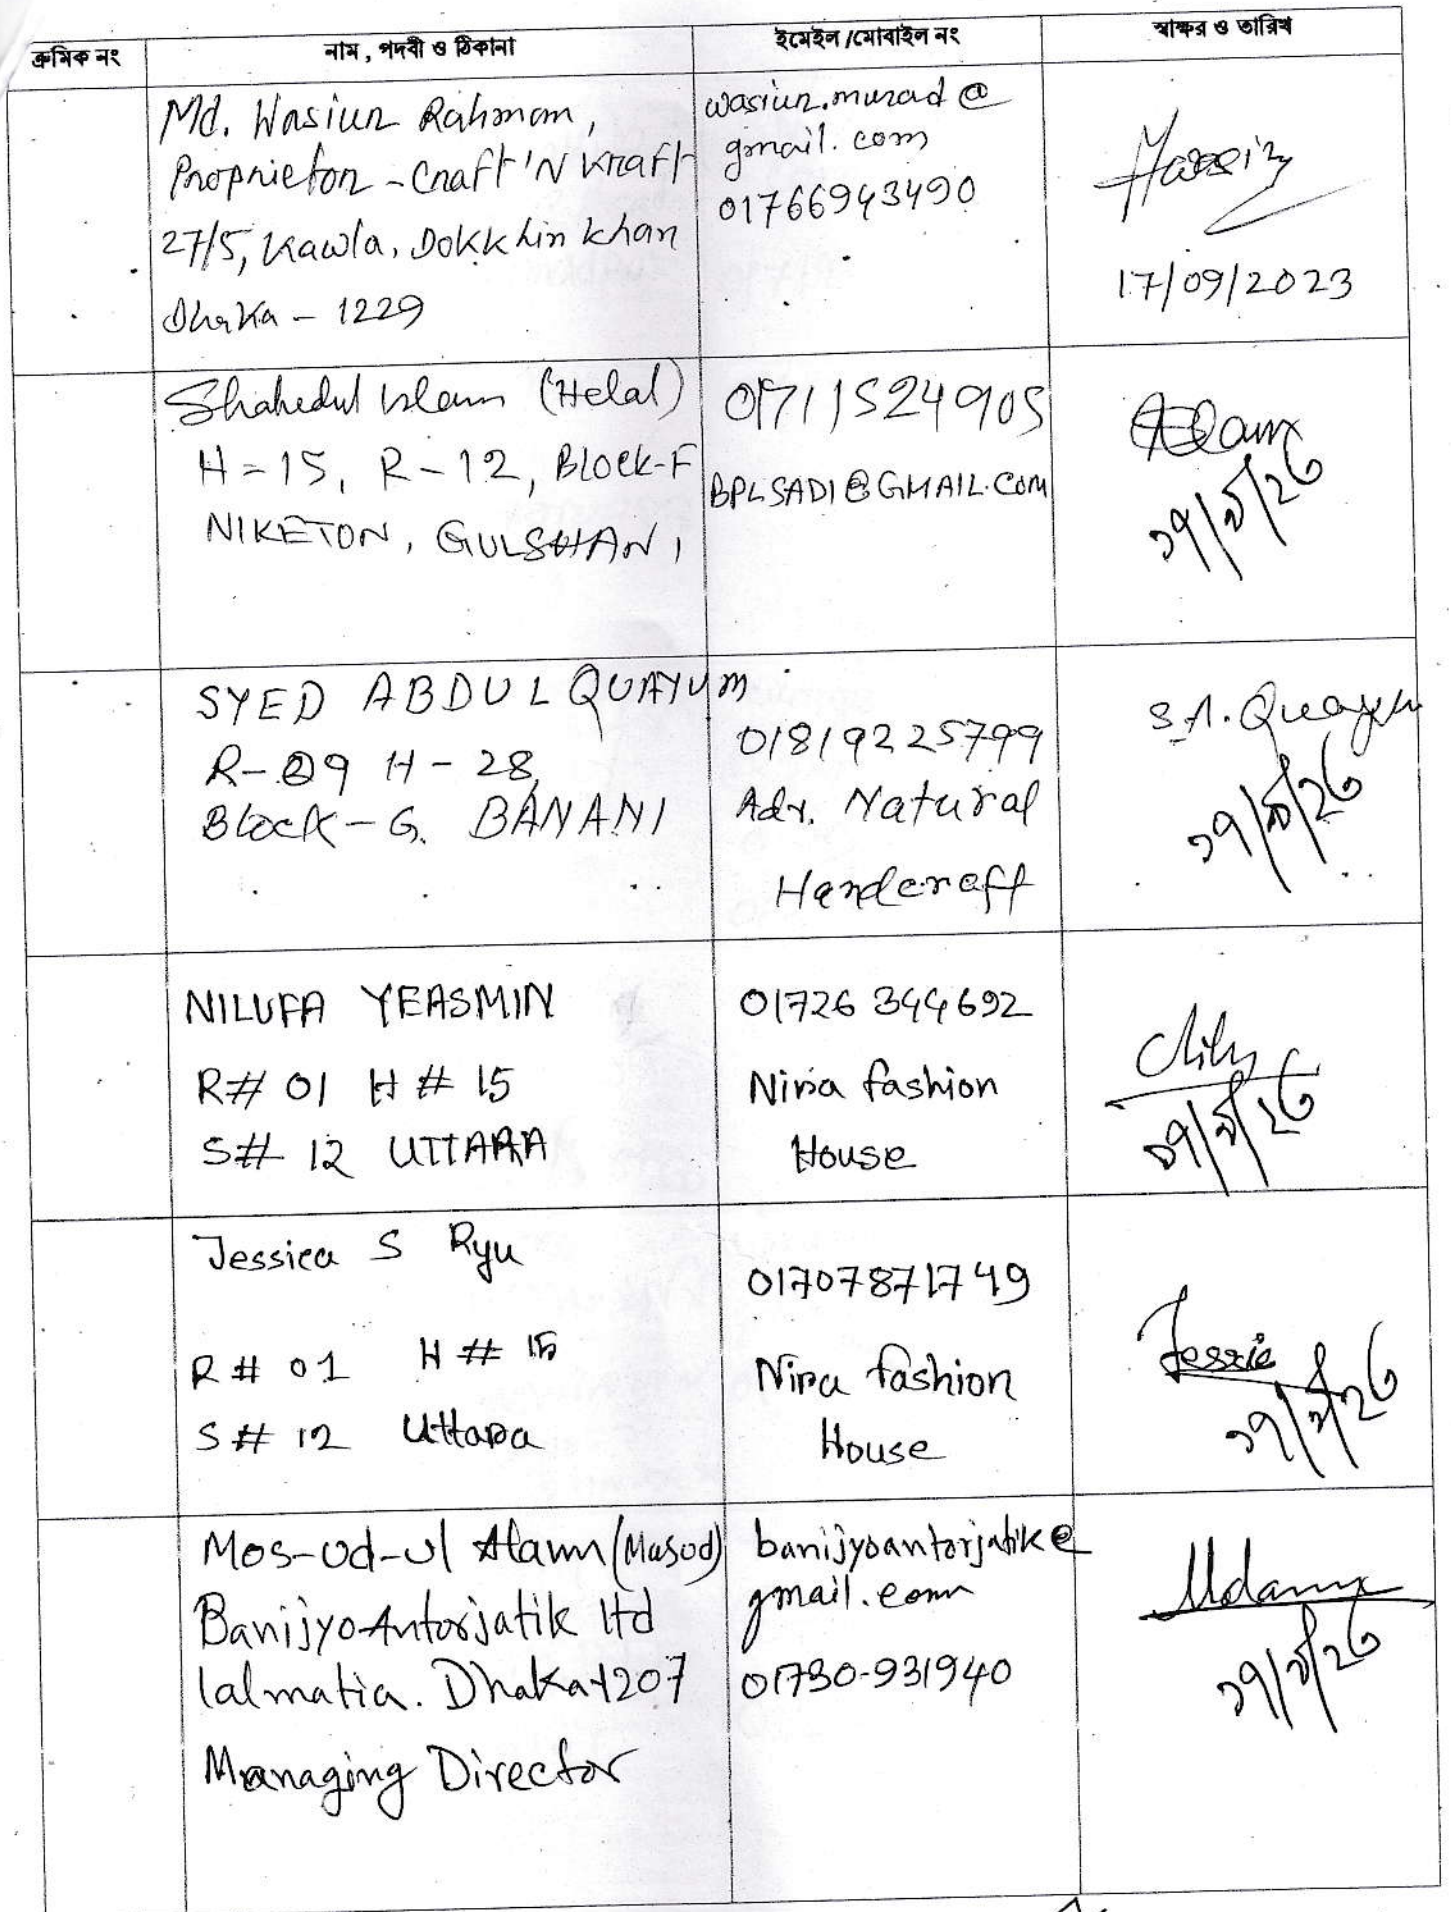 ক্রমিক নং	নাম, পদবী ও ঠিকানা	ইমেইল /মোবাইল নং	স্বাক্ষর ও তারিখ
Md. Wasiur Rahman,
Proprietor - Craft 'N Kraft
27/5, Kawla, Dokkhin khan
Dhaka - 1229
wasiur.murad@
gmail.com
01766943490
17/09/2023
Shahedul Islam (Helal)
H-15, R-12, Block-F
NIKETON, GULSHAN 1
01711524905
BPLSADI@GMAIL.COM
১৭/৯/২৩
SYED ABDUL QUAYUM
R-09 H-28,
Block-G. BANANI
01819225799
Adr. Natural
Handcraft
S.A. Quayum
১৭/৯/২৩
NILUFA YEASMIN
R# 01 H# 15
S# 12 UTTARA
01726 344692
Nira fashion
House
১৭/৯/২৩
Jessica S Ryu
R# 01 H# 15
S# 12 Uttara
01707871749
Nira fashion
House
Jessie
১৭/৯/২৩
Mos-ud-ul Alam (Masud)
Banijyo Antorjatik ltd
lalmatia. Dhaka-1207
Managing Director
banijyoantorjatik@
gmail.com
01730-931940
১৭/৯/২৩